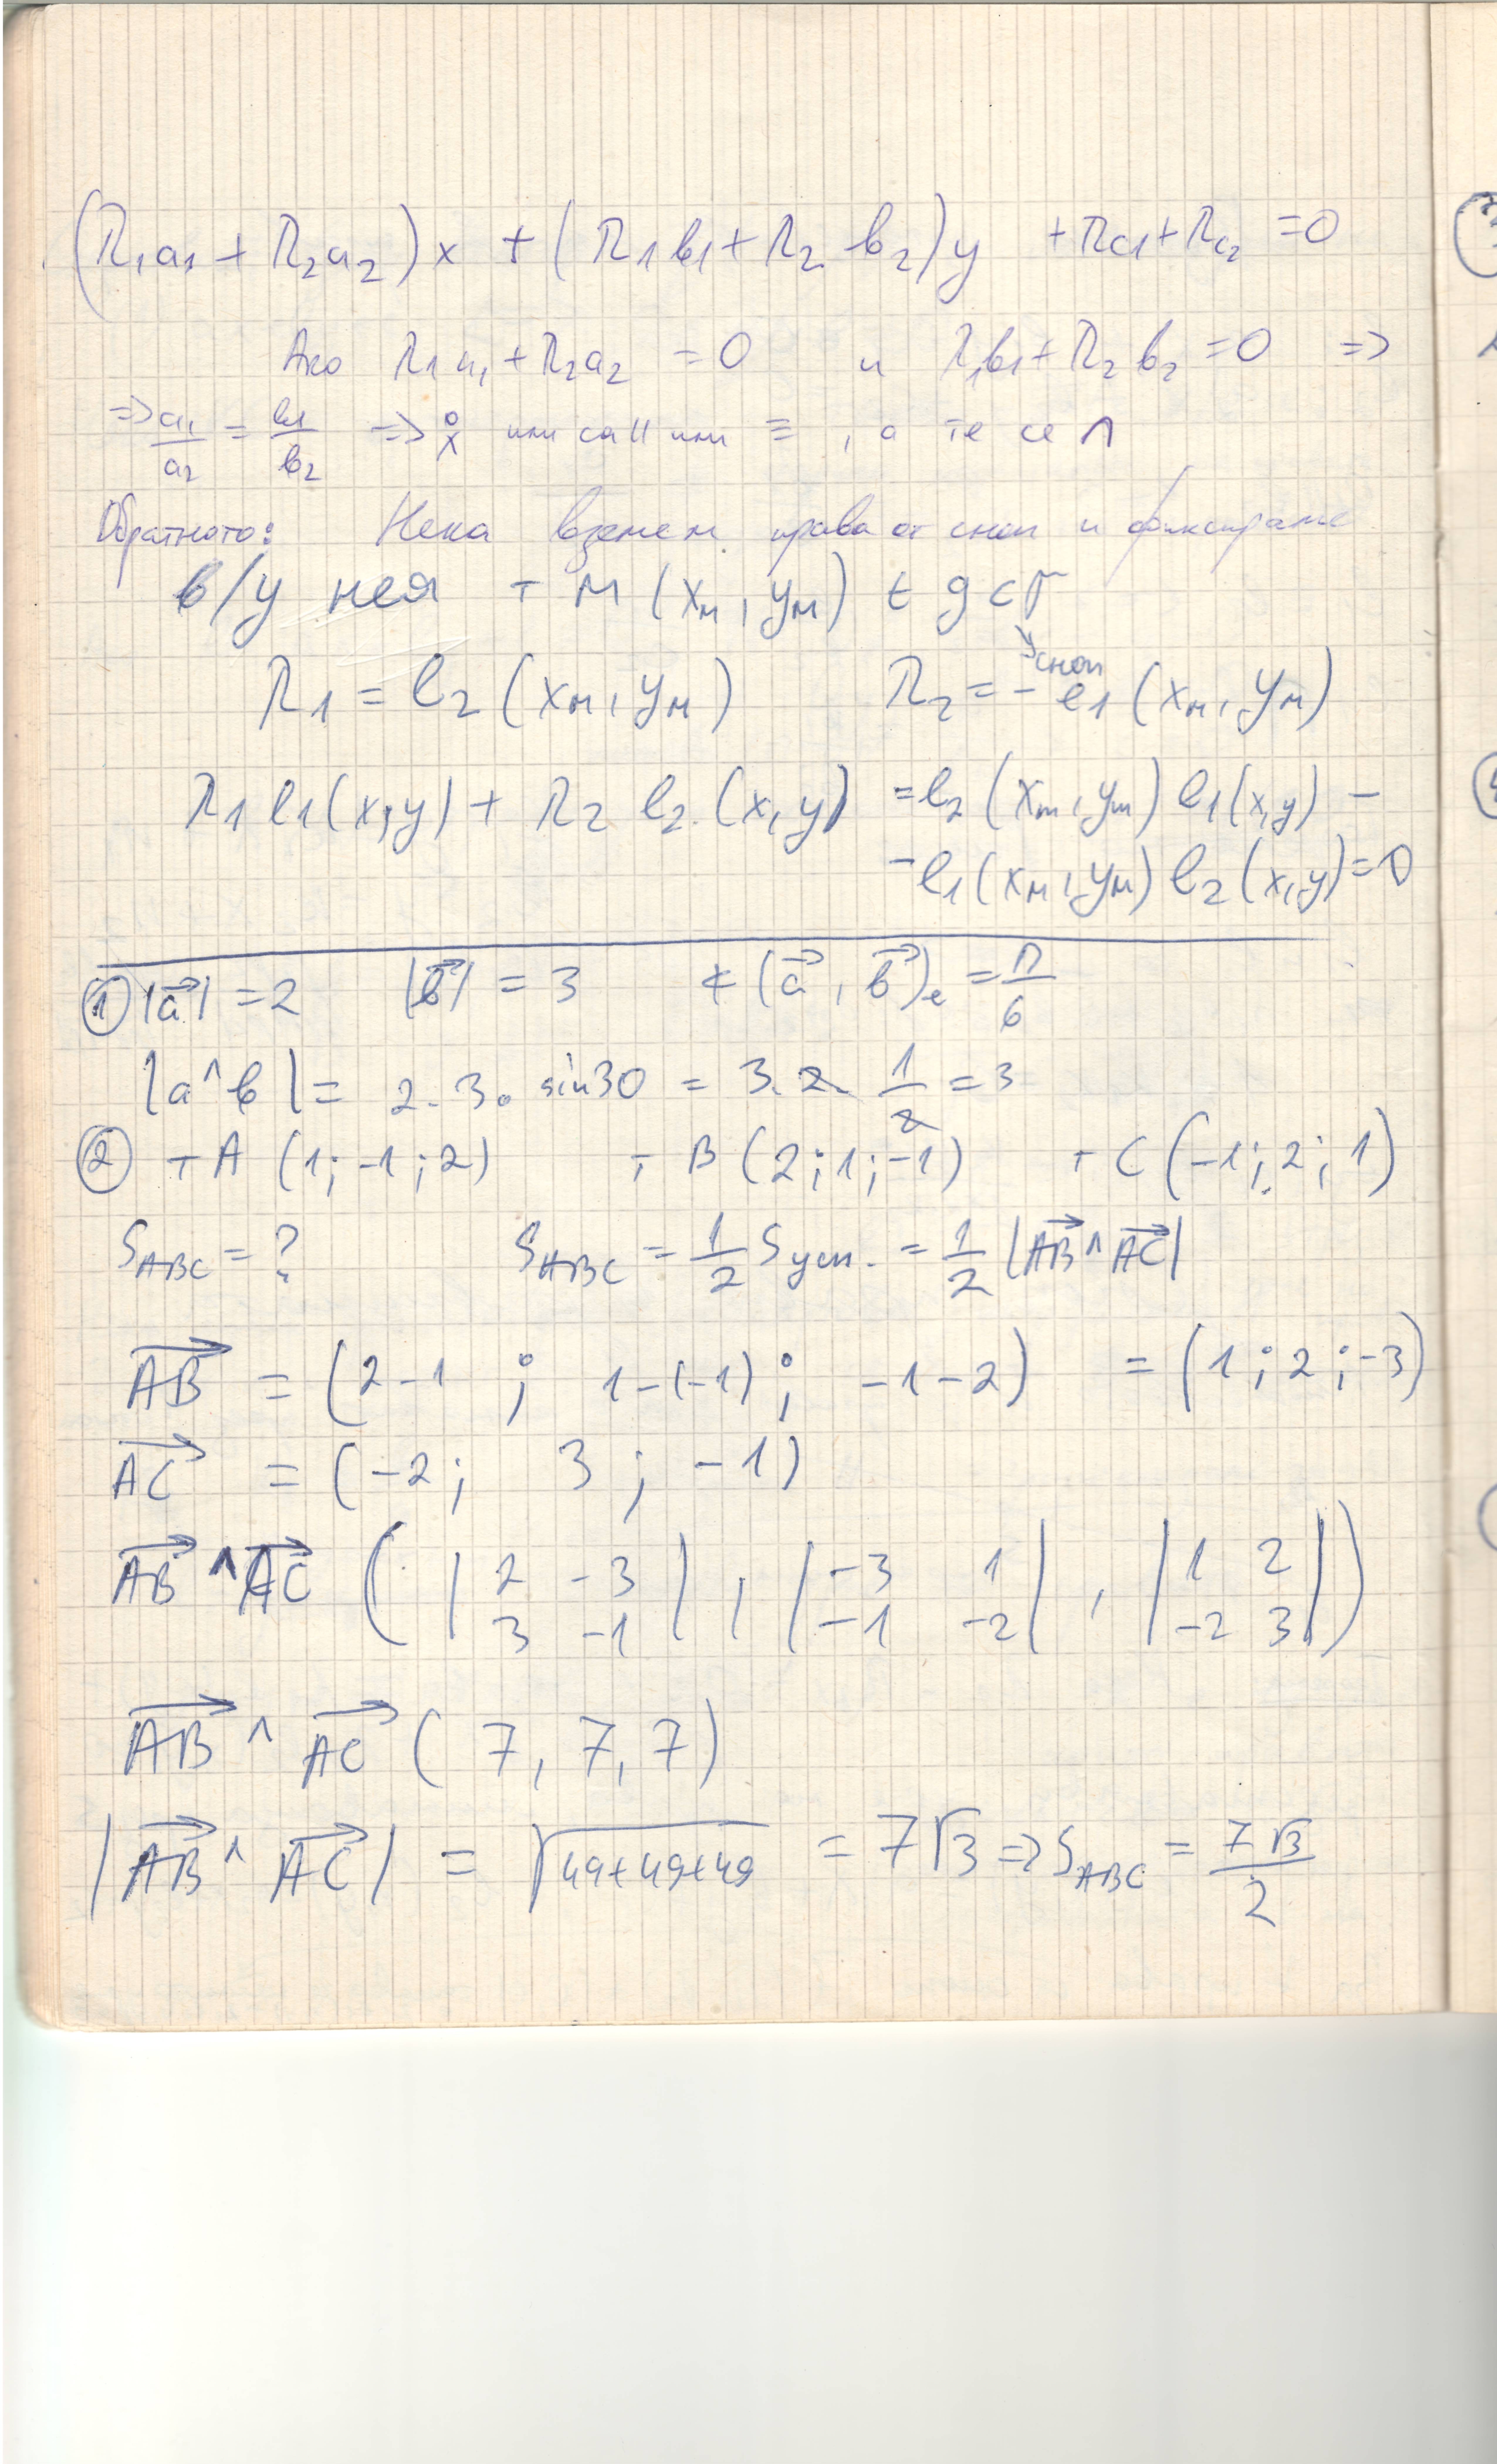 (λ₁a₁ + λ₂a₂)x + (λ₁b₁ + λ₂ b₂)y + λc₁ + λc₂ = 0
Ако λ₁a₁ + λ₂a₂ = 0 и λ₁b₁ + λ₂b₂ = 0 =>
=> a₁/a₂ = b₁/b₂ => или са || или ≡ , а те се ∩
Обратното: Нека вземем права от сноп и фиксираме
в/у нея т M (xм, yм) ∈ g ⊂
сноп
λ₁ = l₂ (xм, yм) λ₂ = - l₁ (xм, yм)
λ₁ l₁(x,y) + λ₂ l₂ (x,y) = l₂ (xм, yм) l₁(x,y) -
- l₁(xм, yм) l₂(x,y) = 0
① |a⃗| = 2 |b⃗| = 3 ∢(a⃗, b⃗)e = π/6
|a^b| = 2.3. sin30 = 3.2. 1/2 = 3
② т A (1; -1; 2) т B (2; 1; -1) т C (-1; 2; 1)
S_ABC = ? S_ABC = 1/2 S усп. = 1/2 |AB⃗ ^ AC⃗|
AB⃗ = (2-1 ; 1-(-1) ; -1-2) = (1; 2; -3)
AC⃗ = (-2; 3; -1)
AB⃗ ^ AC⃗ ( |2 -3; 3 -1| , |-3 1; -1 -2| , |1 2; -2 3| )
AB⃗ ^ AC⃗ (7, 7, 7)
|AB⃗ ^ AC⃗| = √(49+49+49) = 7√3 => S_ABC = 7√3/2